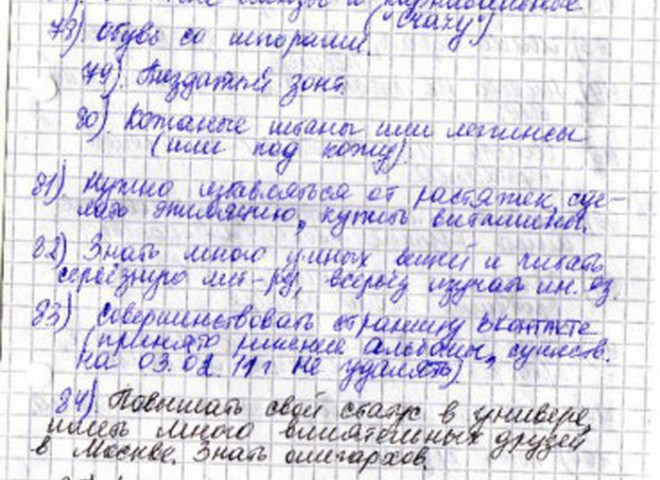 и карнавальные
("Crazy")
78) Обувь со шпорами.
79) Пиздатый зонт.
80) Кожаные штаны или леггинсы
(или под кожу)
81) Нужно избавляться от растяжек, сде-
лать эпиляцию, купить витамины.
82) Знать много умных вещей и читать
серьёзную лит-ру, всерьёз изучать ин. яз.
83) Совершенствовать страницу ВКонтакте
(принято решение альбомы, существ.
на 03.02.11г не удалять)
84) Повышать свой статус в универе,
иметь много влиятельных друзей
в Москве. Знать олигархов.